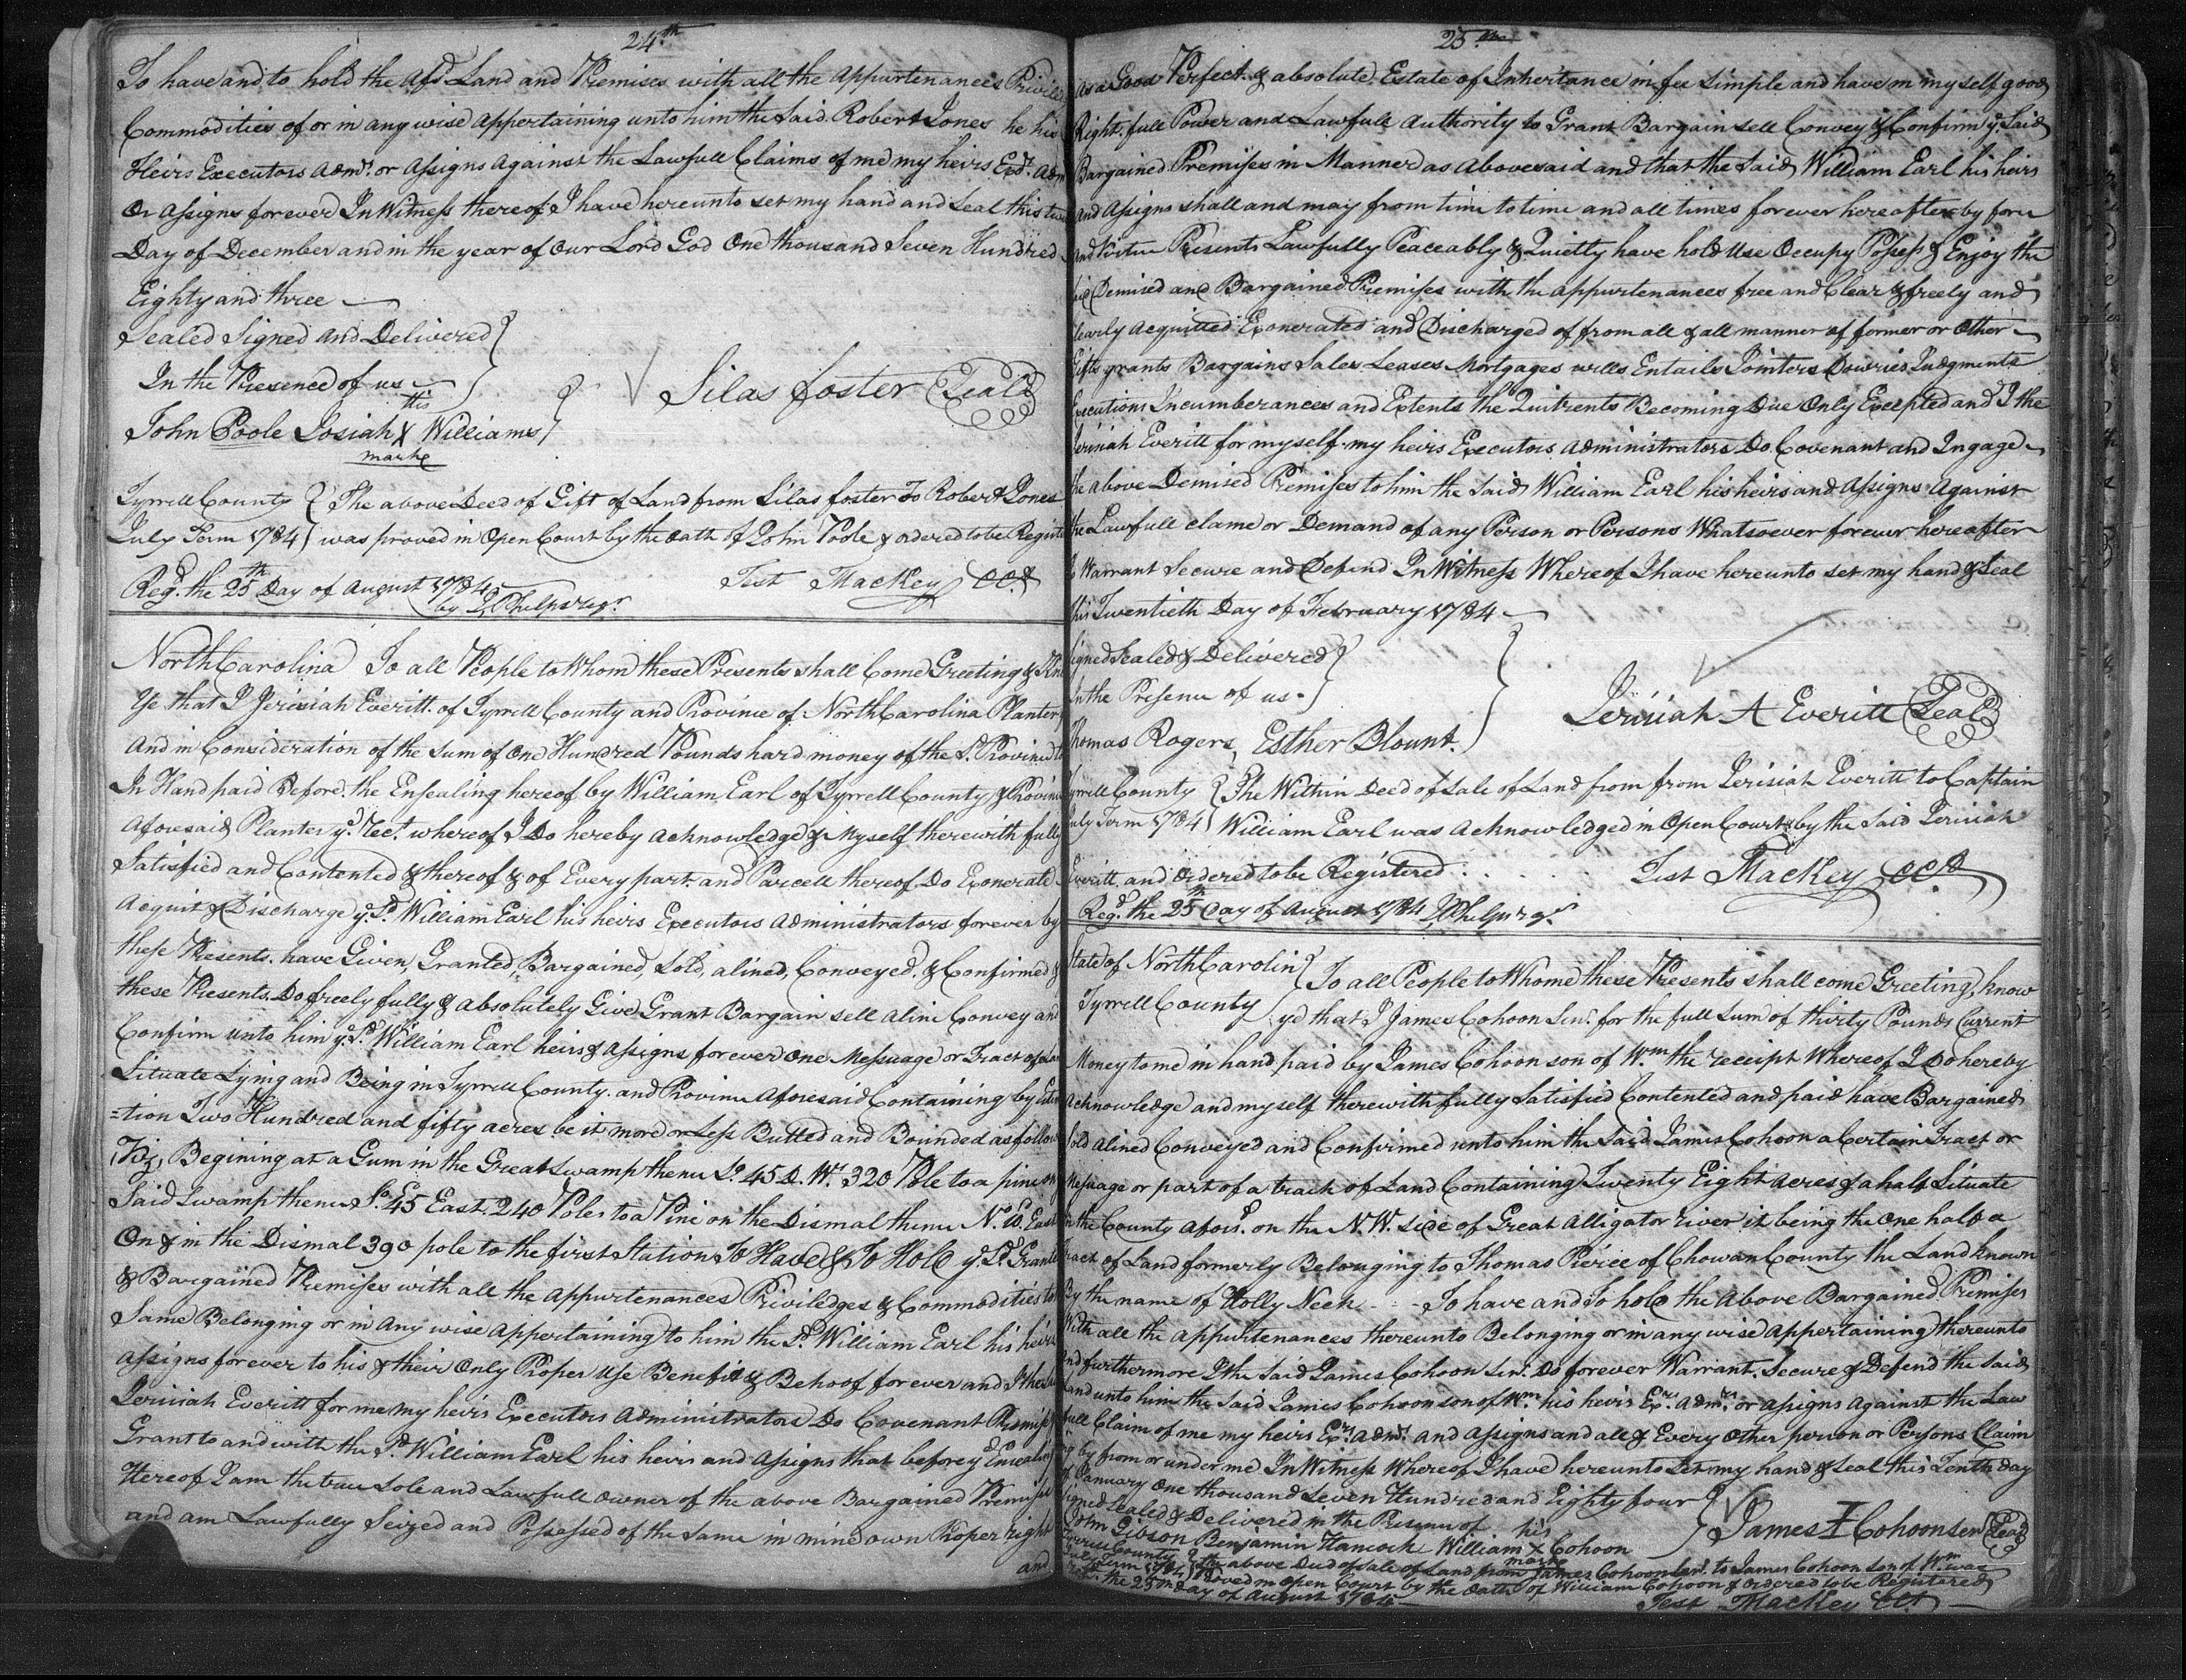 24.th
To have and to hold the afsd. Land and Premises with all the appurtenances Privile
Commodities of or in any wise appertaining unto him the Said Robert Jones he his
Heirs Executors admrs. or assigns against the Lawfull Claims of me my heirs Exd. adm
Or assigns forever In Witness thereof I have hereunto set my hand and Seal this
Day of December and in the year of Our Lord God One thousand Seven Hundred
Eighty and three
Sealed Signed and Delivered
In the Presence of us
his
John Poole Josiah X Williams
marke
Silas foster Seal
Tyrrell County The above Deed of Gift of Land from Silas foster To Robert Jones
July Term 1784 was proved in Open Court by the oath of John Poole & ordered to be Registe
Test Mackey CCt
Regd. the 25th Day of August 1784
by J. Phelps regr.
North Carolina To all People to Whom these Presents shall Come Greeting & Kno
Ye that I Jerisiah Everitt of Tyrrell County and Province of North Carolina Planter
And in Consideration of the Sum of One Hundred Pounds hard money of the Sd. Province to
In Hand paid Before the Ensealing hereof by William Earl of Tyrrell County & Provinc
Aforesaid Planter ye. Rect. whereof I Do hereby acknowledge & Myself therewith fully
Satisfied and Contented & thereof & of Every part and Parcell thereof Do Exonerate
Acquit & Discharge ye. Sd. William Earl his heirs Executors Administrators forever by
these Presents have Given, Granted, Bargained, Sold, alined, Conveyed, & Confirmed &
these Presents Do freely fully & absolutely Give Grant Bargain sell Aline Convey and
Confirm unto him ye. Sd. William Earl heirs & Assigns forever One Messuage or Tract of Lan
Situate Lying and Being in Tyrrell County and Province Aforesaid Containing by Estim
=tion Two Hundred and fifty acres be it more or Less Butted and Bounded as follow
Viz, Begining at a Gum in the Great Swamp thence So. 45 D. Wt. 320 Pole to a pine on
Said Swamp thence So. 45 East 240 Poles to a Pine on the Dismal thence N. 10. East
On & in the Dismal 390 pole to the first Station To Have & To Hold ye. Sd. Grante
& Bargained Premises with all the appurtenances Priviledges & Commodities to
Same Belonging or in Any wise appertaining to him the Sd. William Earl his heirs
Assigns forever to his & their Only Proper Use Benefit & Behoof forever and I the Sa
Jerisiah Everitt for me my heirs Executors Administrators Do Covenant Promise
Grant to and with the Sd. William Earl his heirs and Assigns that before ye Ensealing
Hereof I am the true Sole and Lawfull Owner of the above Bargained Premises
and am Lawfully Seized and Possessed of the Same in mine own Proper right
and
25.th
As a Good Perfect & absolute Estate of Inheritance in fee Simple and have in my self good
Right, full Power and Lawfull Authority to Grant Bargain sell Convey & Confirm ye. Said
Bargained Premises in Manner as Abovesaid and that the Said William Earl his heirs
And Assigns shall and may from time to time and all times forever hereafter by force
and Virtue Presents Lawfully Peaceably & Quietly have hold Use Occupy Posess & Enjoy the
said Demised and Bargained Premises with the appurtenances free and Clear & freely and
Clearly Acquitted Exonerated and Discharged of from all & all manner of former or Other
Gifts grants Bargains Sales Leases Mortgages wills Entails Jointers Dowries Judgments
Executions Incumberances and Extents the Quitrents Becoming Due Only Excepted and I the
Jerisiah Everitt for myself my heirs Executors Administrators Do Covenant and Ingage
the above Demised Premises to him the Said William Earl his heirs and Assigns Against
the Lawfull clame or Demand of any Person or Persons Whatsoever forever hereafter
to Warrant Secure and Defend In Witness Whereof I have hereunto set my hand & Seal
this Twentieth Day of February 1784
Signed Sealed & Delivered
In the Presence of us
Thomas Rogers, Esther Blount.
Jerisiah A Everitt Seal
Tyrrell County The Within Deed of Sale of Land from from Jerisiah Everitt to Captain
July Term 1784 William Earl was Acknowledged in Open Court by the Said Jerisiah
Everitt and Ordered to be Registered
Test Mackey CCt
Regd. the 25th Day of August 1784 J Phelps regr.
State of North Carolin To all People to Whome these Presents shall come Greeting, know
Tyrrell County ye that I James Cohoon Senr. for the full Sum of thirty Pounds Current
Money to me in hand paid by James Cohoon son of Wm. the receipt Whereof I Do hereby
Acknowledge and myself therewith fully Satisfied Contented and paid have Bargained
Sold Alined Conveyed and Confirmed unto him the Said James Cohoon a Certain Tract or
Messuage or part of a track of Land Containing Twenty Eight Acres & a half Situate
In the County Aforsd. on the N.W. side of Great Alligator river it being the One half a
Tract of Land formerly Belonging to Thomas Pierce of Chowan County the Land known
By the name of Holly Neck To have and To hold the Above Bargained Premises
With all the appurtenances thereunto Belonging or in any wise Appertaining thereunto
And furthermore I the Said James Cohoon Senr. Do forever Warrant Secure & Defend the Said
Land unto him the Said James Cohoon son of Wm. his heirs Exrs. Admrs. or Assigns Against the Law
full Claim of me my heirs Exrs. admrs. and Assigns and all & Every other person or Persons Claim
ing by from or under me In Witness Whereof I have hereunto Set my hand & Seal this Tenth day
of January One thousand Seven Hundred and Eighty four
Signed Sealed & Delivered in the Presence of his
John Gibson Benjamin Hancock William X Cohoon
marke
James I Cohoon Senr Seal
Tyrrell County The above Deed of Sale of Land from James Cohoon Senr. to James Cohoon son of Wm. was
July Term 1784 Proved in Open Court by the Oath of William Cohoon & Ordered to be Registered
Regd. the 25th Day of August 1784
Test Mackey CCt